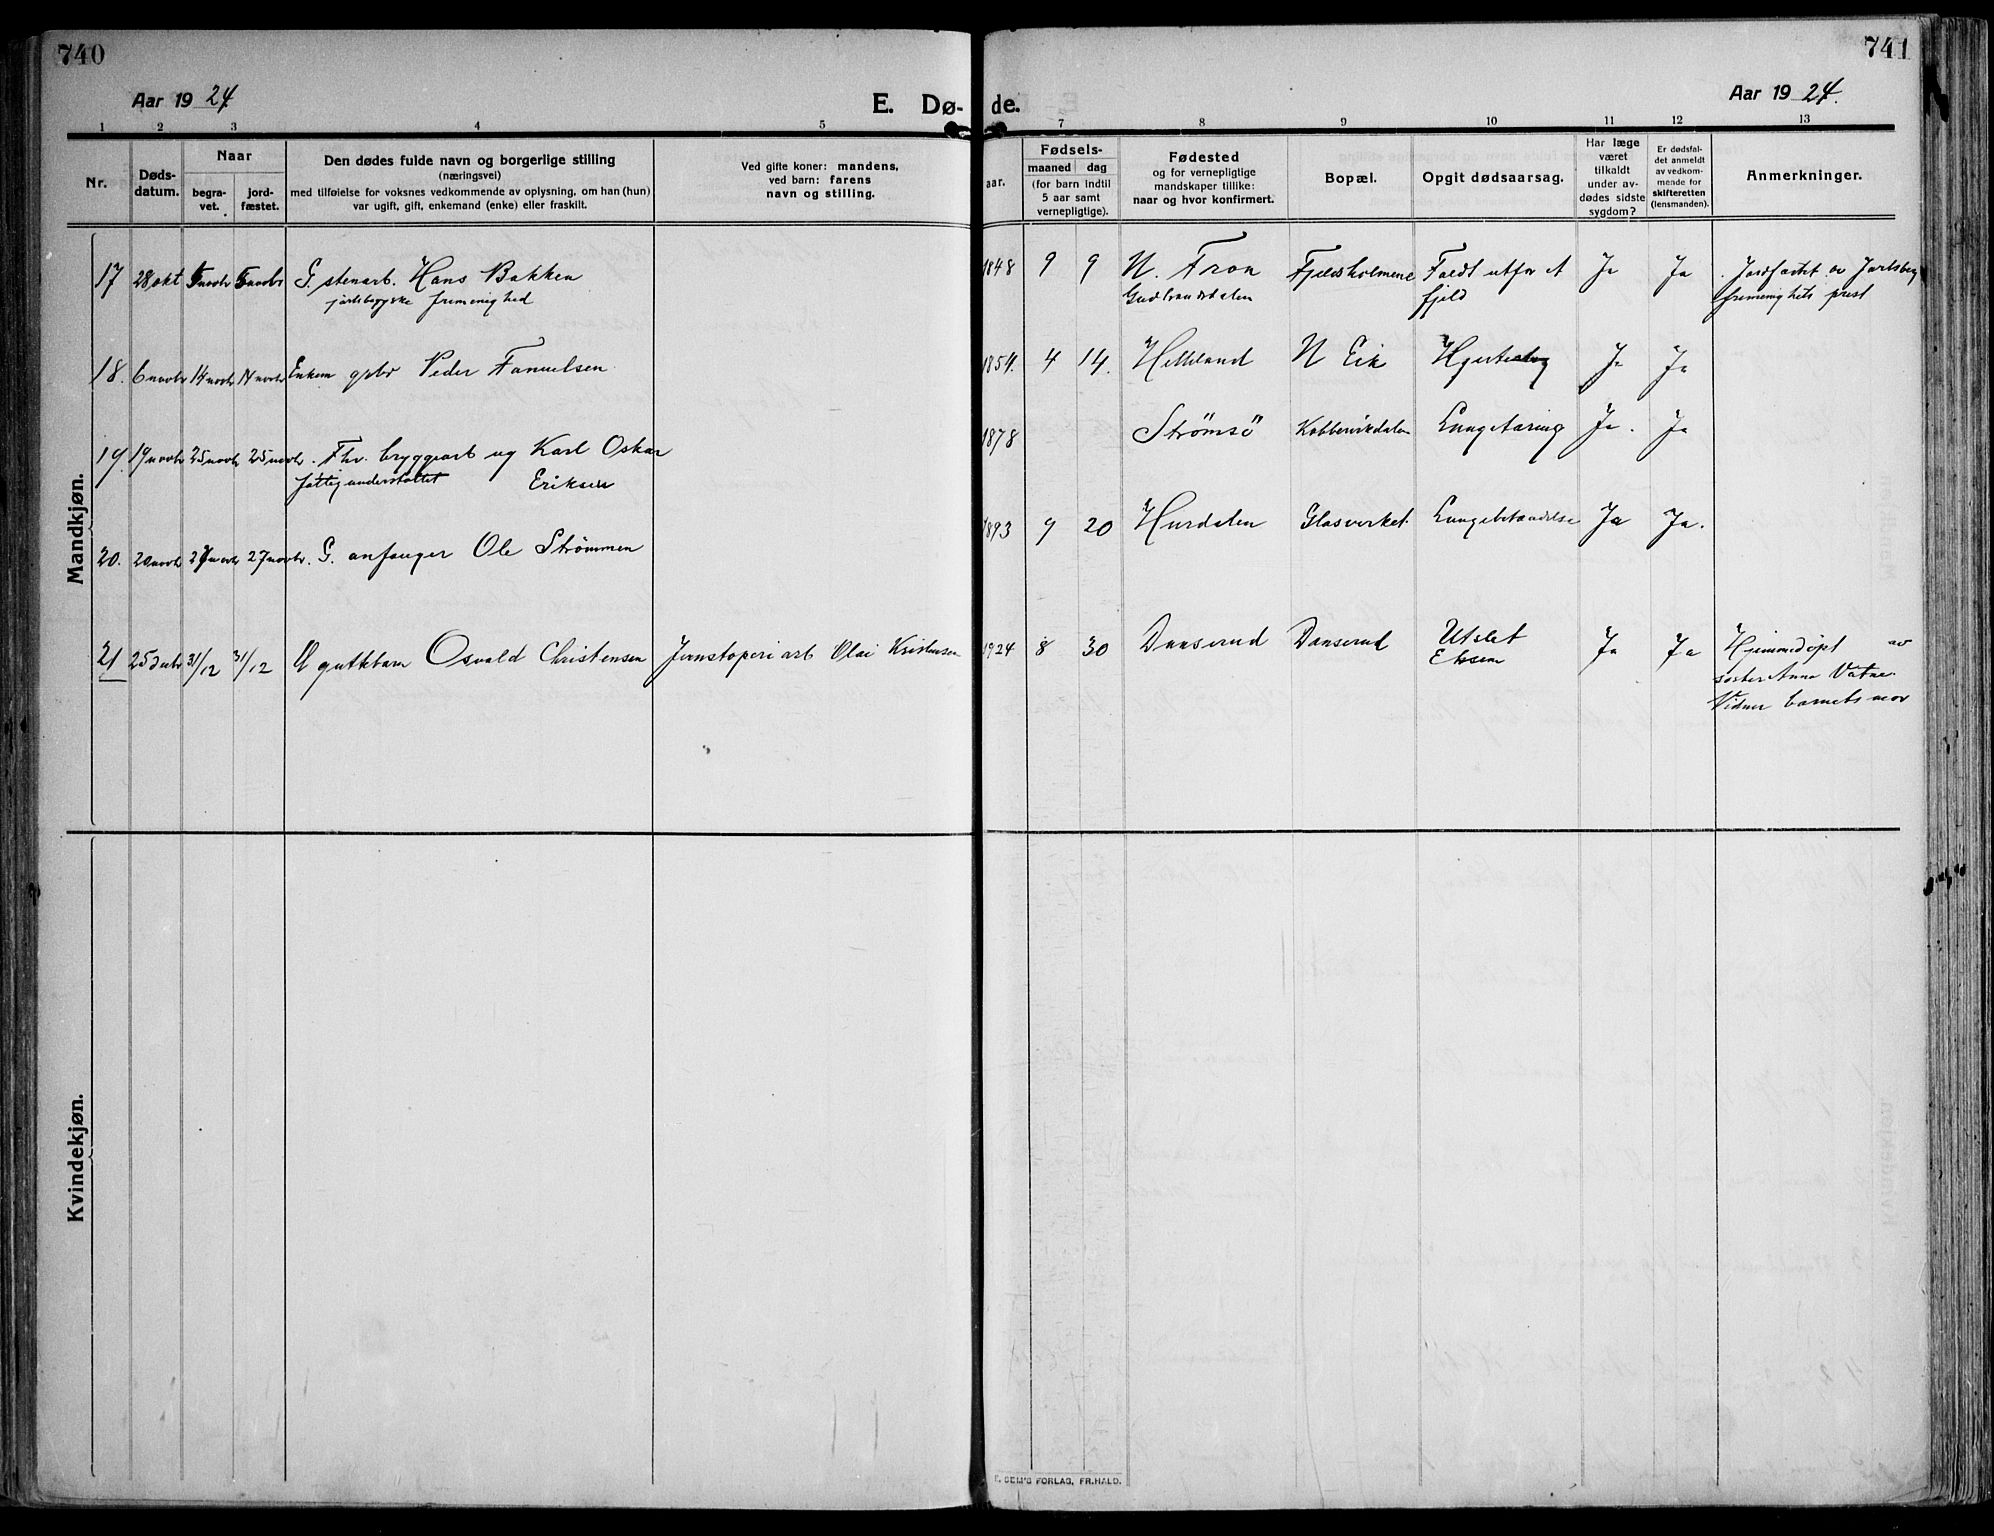 740
741
Aar 1924
E. Dø-
de.
Aar 1924.
1 2 3 4 5 7 8 9 10 11 12 13
Nr.
Døds-
datum.
Naar
begra-
vet.
jord-
fæstet.
Den dødes fulde navn og borgerlige stilling
(næringsvei)
med tilføielse for voksnes vedkommende av oplysning, om han (hun)
var ugift, gift, enkemand (enke) eller fraskilt.
Ved gifte koner: mandens,
ved barn: farens
navn og stilling.
Fødsels-
aar.
maaned dag
(for barn indtil
5 aar samt
vernepligtige).
Fødested
og for vernepligtige
mandskaper tillike:
naar og hvor konfirmert.
Bopæl.
Opgit dødsaarsag.
Har læge
været
tilkaldt
under av-
dødes sidste
sygdom?
Er dødsfal-
det anmeldt
av vedkom-
mende for
skifteretten
(lensmanden).
Anmerkninger.
Mandkjøn.
17 28 okt 5 novbr 5 novbr G. stenarb. Hans Bakken 1848 9 9 N. Fron Fjeldsholmene Faldt utfor et Ja Ja Jordfæstet av Jarlsberg
frimenighed Gudbrandsdalen fjeld frimenighets prest
18. 6 novbr 14 novbr 14 novbr Enkem gbr Peder Fanuelsen 1854. 4 14. Helleland N Eik Ja Ja
19. 19 novbr 25 novbr 25 novbr. Fhv. bryggearb og Karl Oskar 1878 Strømsö Kobbervikdalen Lungetæring Ja. Ja
fattigunderstøttet Eriksen
20. 20 novbr 27 novbr 27 novbr. G. anfanger Ole Strømmen 1893 9 20 Hurdalen Glasverket. Lungebetændelse Ja Ja.
21 25 31/12 31/12 guttbarn Osvald Christensen Jernstøperiarb Olai Kristensen 1924 8 30 Danserud Danserud Utslet Ja Ja Hjemmedøpt av
Eksem søster Anna Vatne.
Vidner barnets mor
Kvindekjøn.
E. SEM'S FORLAG, FR.HALD.